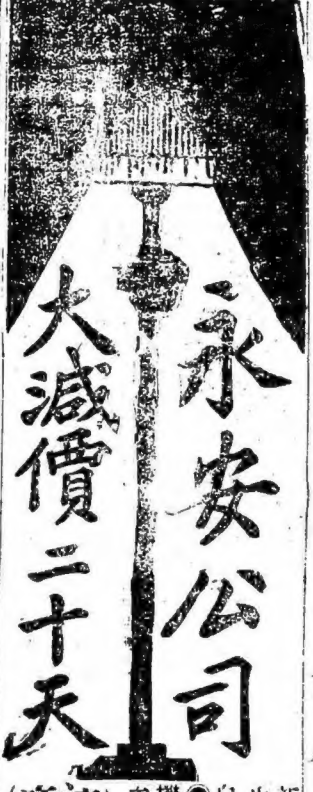 永安公司
大減價二十天